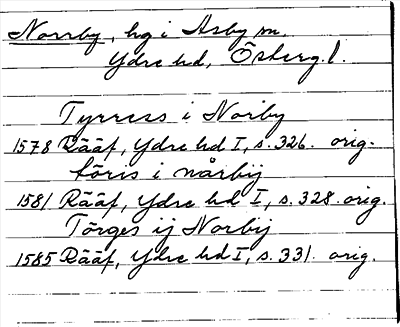 Norrby, hg i Asby sn.
Ydre hd, Österg. l.
Tyrress i Norby
1578 Rääf, Ydre hd I, s. 326. orig.
töris i nårbij
1581 Rääf, Ydre hd I, s. 328. orig.
Törges ij Norbij
1585 Rääf, Ydre hd I, s. 331. orig.